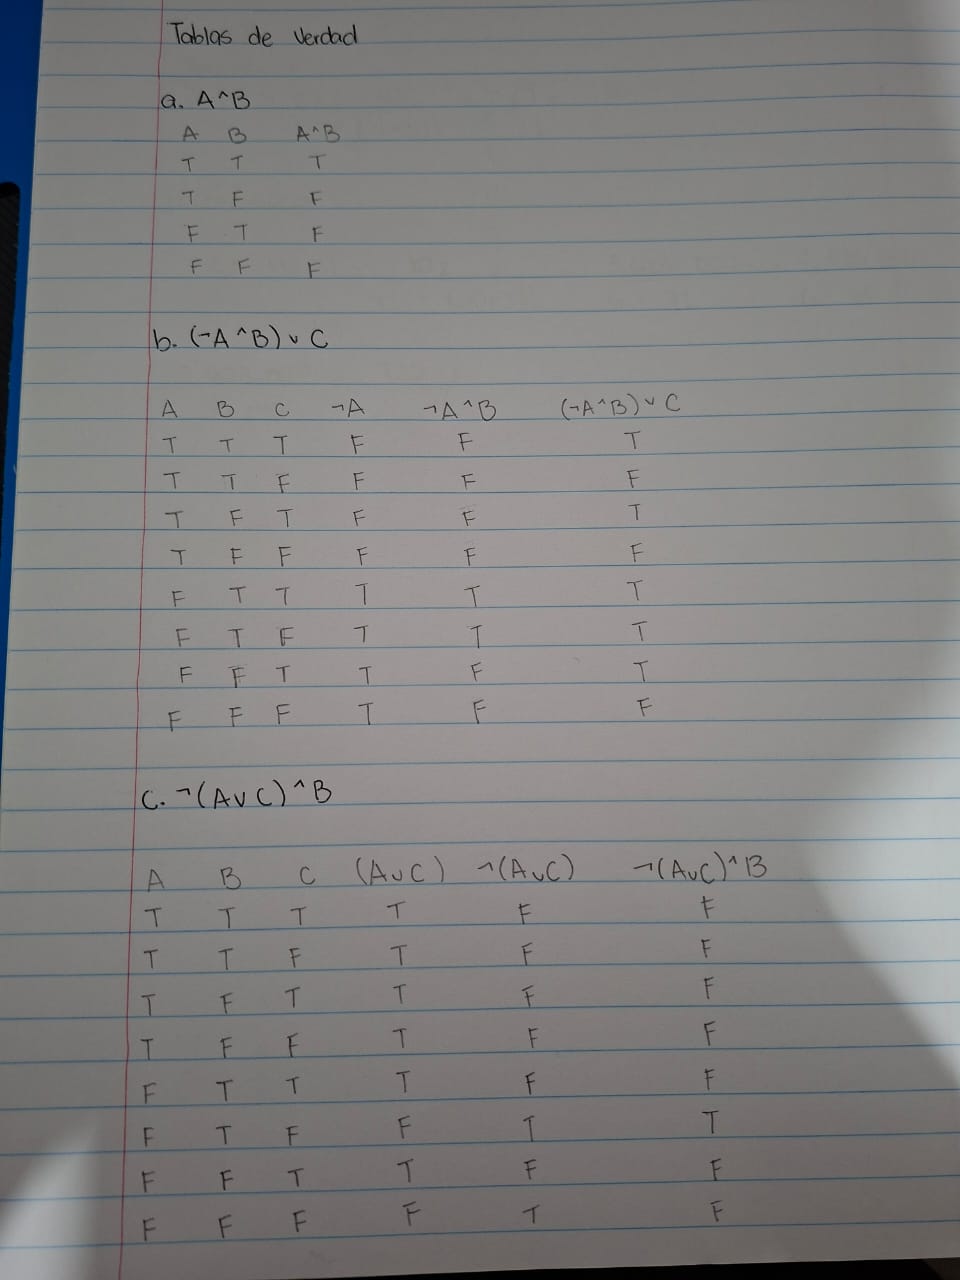 Tablas de Verdad
a. A^B
A B A^B
T T T
T F F
F T F
F F F
b. (¬A^B) v C
A B C ¬A ¬A^B (¬A^B) v C
T T T F F T
T T F F F F
T F T F F T
T F F F F F
F T T T T T
F T F T T T
F F T T F T
F F F T F F
C. ¬(AvC)^B
A B C (AvC) ¬(AvC) ¬(AvC)^B
T T T T F F
T T F T F F
T F T T F F
T F F T F F
F T T T F F
F T F F T T
F F T T F F
F F F F T F